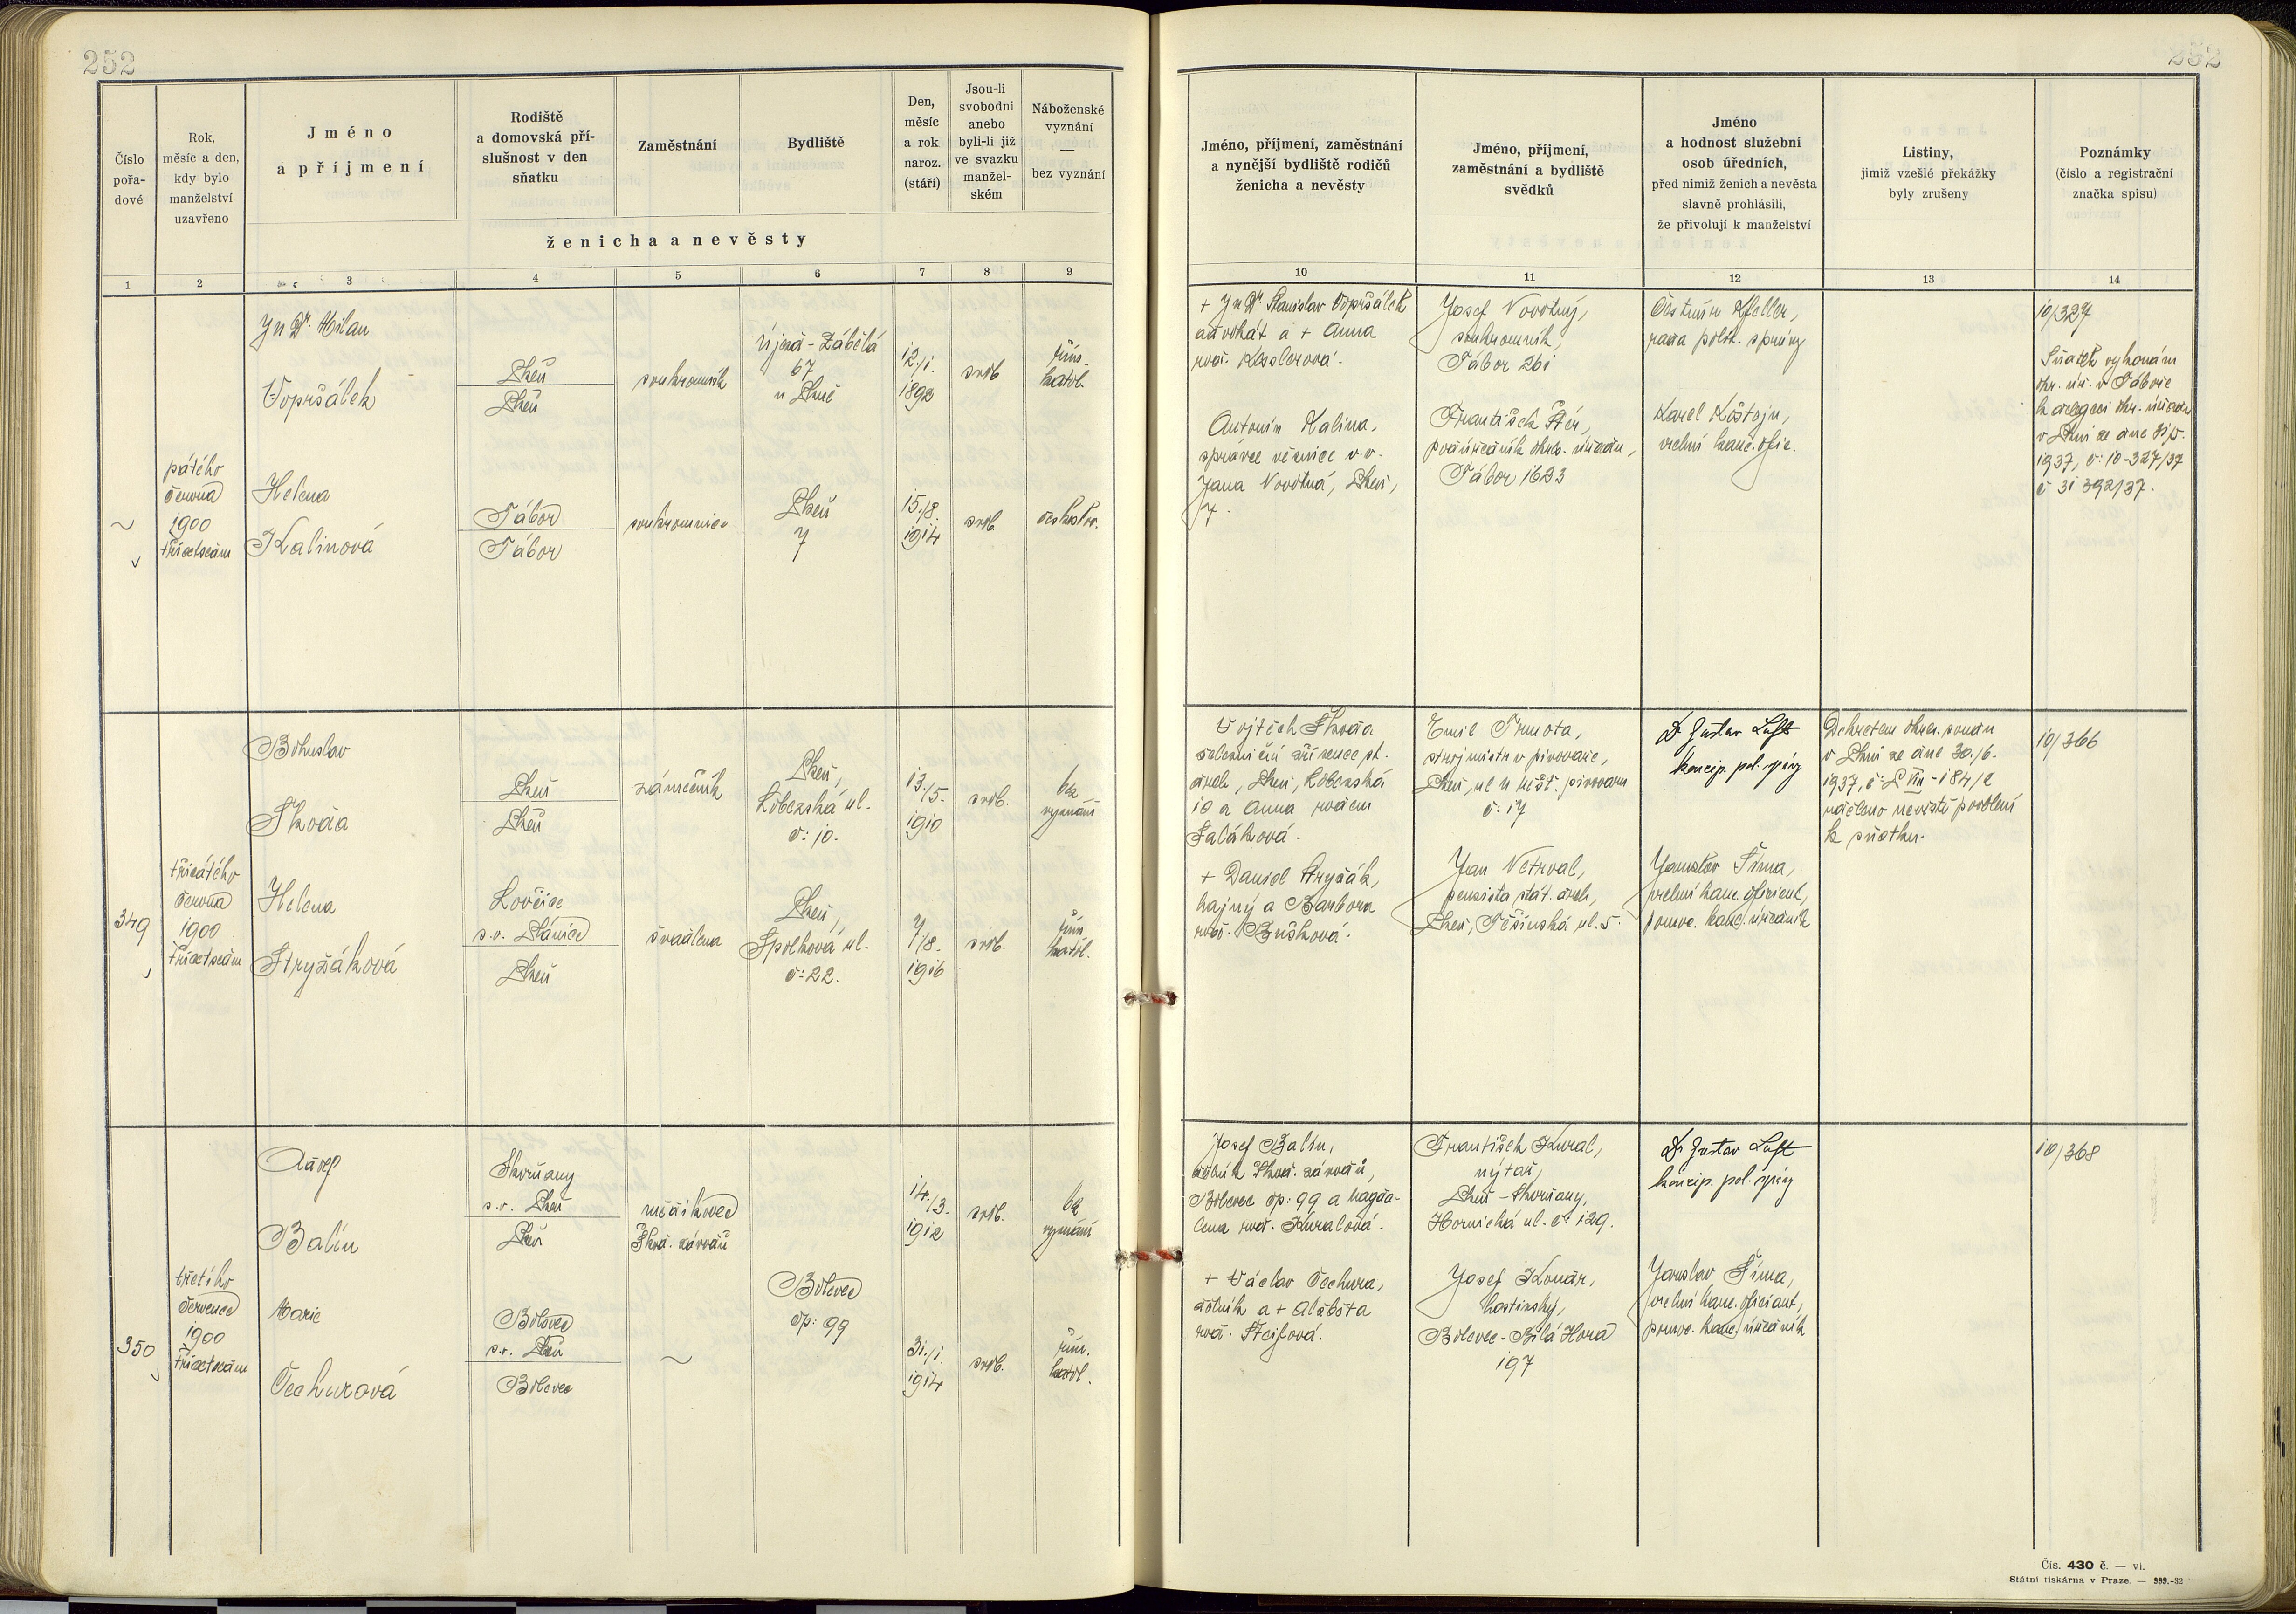 252
252
Číslo
pořa-
dové
Rok,
měsíc a den,
kdy bylo
manželství
uzavřeno
Jméno
a příjmení
Rodiště
a domovská pří-
slušnost v den
sňatku
Zaměstnání
Bydliště
Den,
měsíc
a rok
naroz.
(stáří)
Jsou-li
svobodni
anebo
byli-li již
ve svazku
manžel-
ském
Náboženské
vyznání
—
bez vyznání
ženicha a nevěsty
Jméno, příjmení, zaměstnání
a nynější bydliště rodičů
ženicha a nevěsty
Jméno, příjmení,
zaměstnání a bydliště
svědků
Jméno
a hodnost služební
osob úředních,
před nimiž ženich a nevěsta
slavně prohlásili,
že přivolují k manželství
Listiny,
jimiž vzešlé překážky
byly zrušeny
Poznámky
(číslo a registrační
značka spisu)
1 2 3 4 5 6 7 8 9
10 11 12 13 14
~
pátého
června
1900
třicetsedm
JuDr. Milan
Vopršálek
Plzeň
Plzeň
soukromník
Újezd - Zábělá
67
u Plzně
12./1.
1892
svob
řím.
katol.
Helena
Kalinová
Tábor
Tábor
soukromnice
Plzeň
7
15./8.
1914
svob
českoslov.
+ JuDr. Stanislav Vopršálek
advokát a + Anna
roz. Kesslerová.
Antonín Kalina,
správce věznice v.v.
Jana Novotná, Plzeň,
7.
Josef Novotný,
soukromník,
Tábor 261
František Fiér,
podúředník okres. úřadu,
Tábor 1623
Čestmír Kfeller,
rada polit. správy
Karel Koštejn,
vrchní kanc. ofic.
10/327
Sňatek vykonán
okr. úř. v Táboře
k delegaci okr. úřadu
v Plzni ze dne 31/5.
1937, č: 10-327/37
č 31 392/37.
349
třicátého
června
1900
třicetsedm
Bohuslav
Škoda
Plzeň
Plzeň
zámečník
Plzeň,
Lobezská ul.
č: 10.
13./5.
1910
svob.
bez
vyznání
Helena
Stryžáková
Lovčice
s.o. Plánice
Plzeň
švadlena
Plzeň,
Spolková ul.
č: 22.
7/8.
1916
svob.
řím
katol.
Vojtěch Škoda
železniční zřízenec st.
drah, Plzeň, Lobezská
10 a Anna rozen
Saláková.
+ Daniel Stryžák,
hajný a Barbora
roz. Bušková.
Emil Trmota,
strojmistr v pivovaře,
Plzeň, ul u měšť. pivovaru
č: 17
Jan Netrval,
pensista stát. drah,
Plzeň, Těšínská ul. 5.
Dr Gustav Luft
koncip. pol. správy
Jaroslav Šíma,
vrchní kanc. oficiant,
pomoc. kanc. úředník
Dekretem okres. soudu
v Plzni ze dne 30./6.
1937, č: L VIII - 184/2
uděleno nevěstě povolení
k sňatku.
10/366
350
třetího
července
1900
třicetsedm
Josef
Balín
Skvrňany
s.o. Plzeň
Plzeň
Škod. závodů
Bolevec
čp: 99
14./3.
1912
svob.
bez
vyznání
Marie
Čechurová
Bolevec
s.o. Plzeň
Bolevec
~
31./1.
1914
svob.
řím.
katol.
Josef Balín,
dělník Škod. závodů,
Bolevec čp: 99 a Magda-
lena roz. Kuralová.
+ Václav Čechura,
dělník a + Alžběta
roz. Šteifová.
František Kural,
nýtař,
Plzeň - Skvrňany,
Hornická ul. č: 129.
Josef Konár,
hostinský,
Bolevec - Bílá Hora
197
Dr Gustav Luft
koncip. pol. správy
Jaroslav Šíma,
vrchní kanc. oficiant,
pomoc. kanc. úředník
10/368
Čís. 430 č. — vl.
Státní tiskárna v Praze. — 999.-32